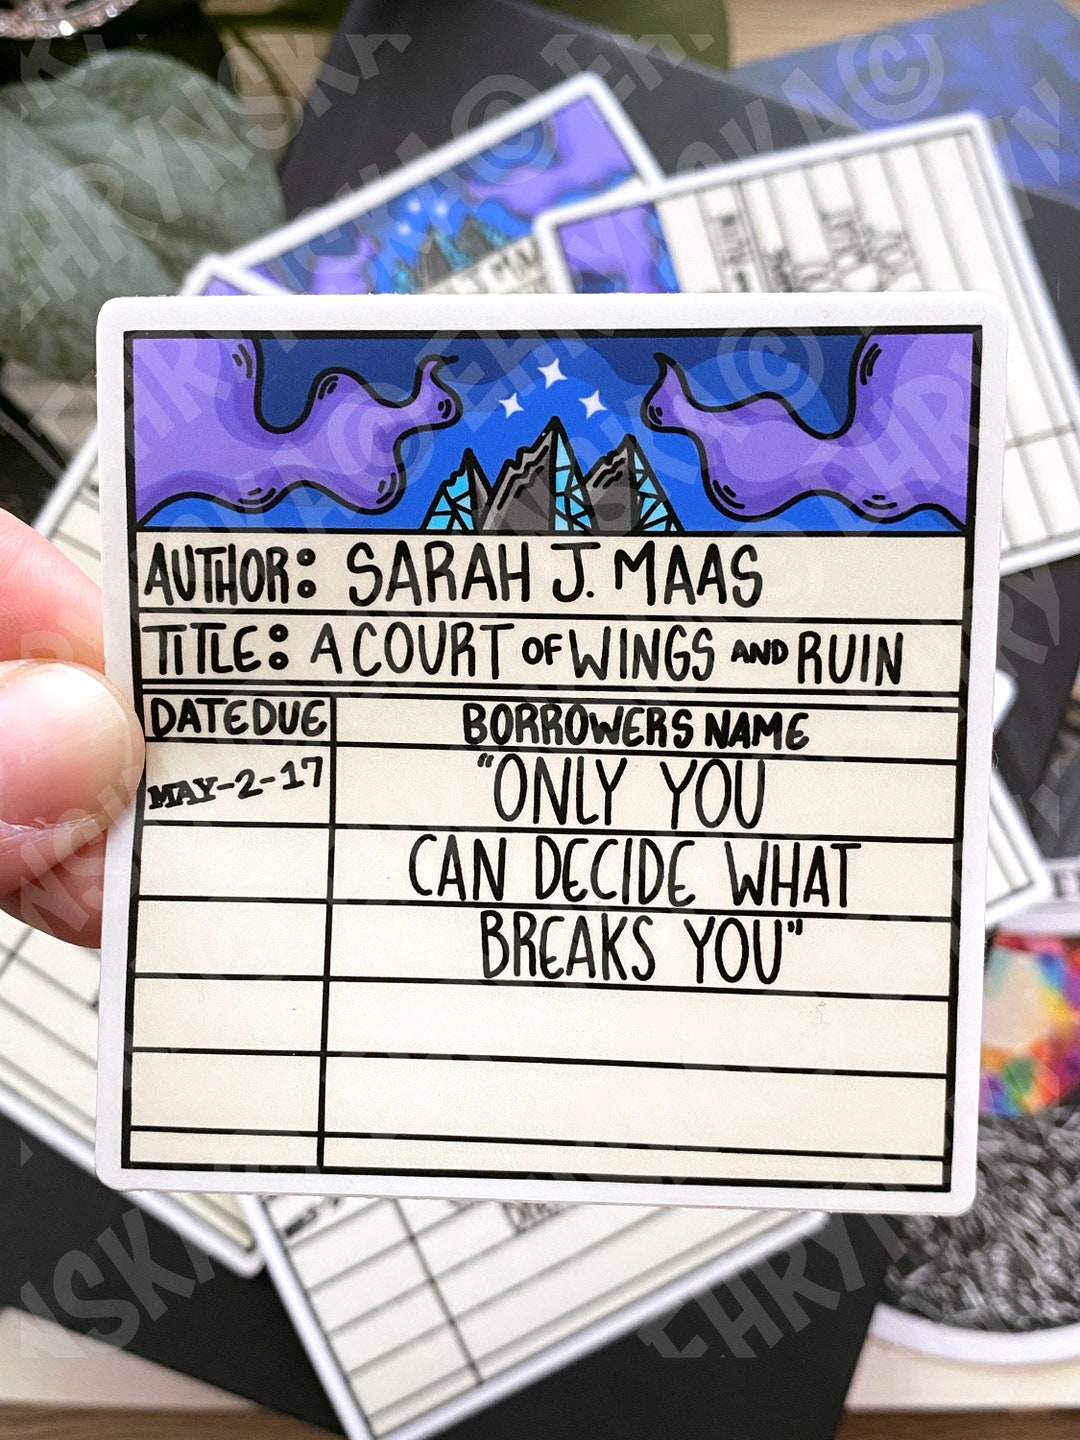 AUTHOR: SARAH J. MAAS
TITLE: A COURT OF WINGS AND RUIN
DATE DUE BORROWERS NAME
MAY-2-17 "ONLY YOU
CAN DECIDE WHAT
BREAKS YOU"